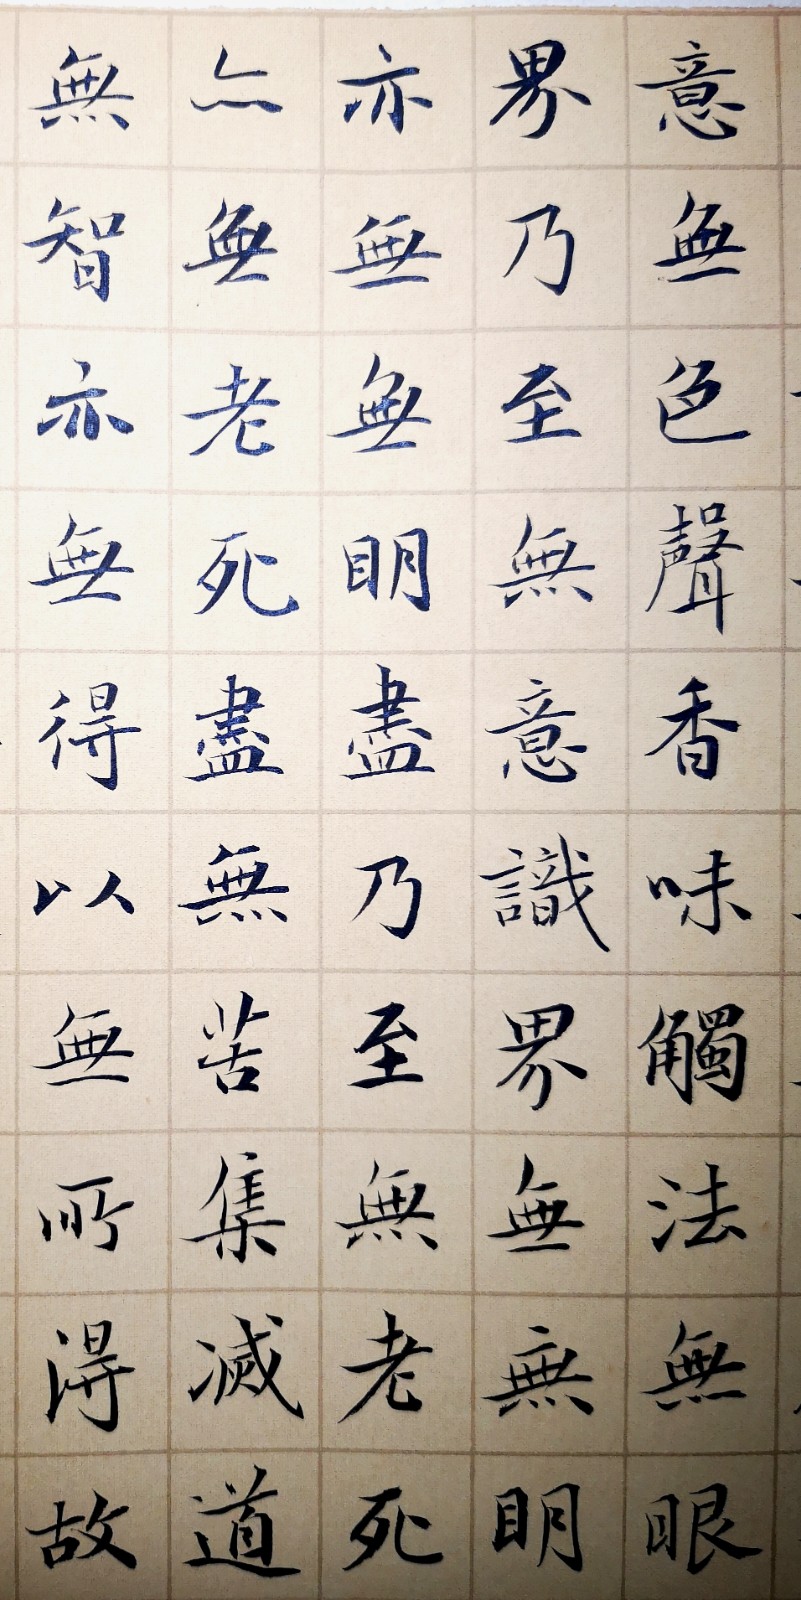 意無色聲香味觸法無眼
界乃至無意識界無無明
亦無無明盡乃至無老死
亦無老死盡無苦集滅道
無智亦無得以無所得故